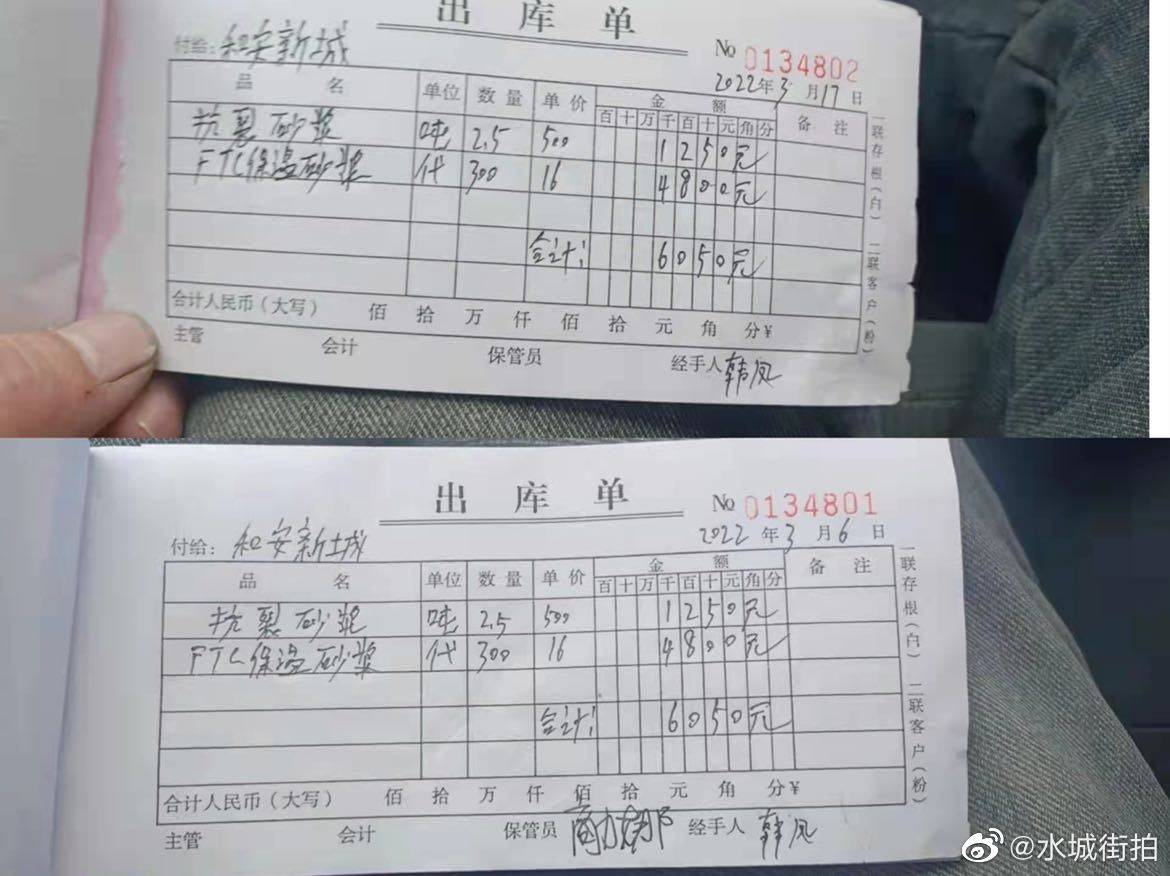 出库单
No 0134802
付给：和安新城
2022年3月17日
品名 单位 数量 单价 金额 备注
百十万千百十元角分
抗裂砂浆 吨 2.5 500 1250元
FTC保温砂浆 代 300 16 4800元
合计: 6050元
合计人民币（大写） 佰 拾 万 仟 佰 拾 元 角 分￥
主管 会计 保管员 经手人 韩凤
一联存根（白） 二联客户（粉）
出库单
No 0134801
付给：和安新城
2022年3月6日
品名 单位 数量 单价 金额 备注
百十万千百十元角分
抗裂砂浆 吨 2.5 500 1250元
FTC保温砂浆 代 300 16 4800元
合计: 6050元
合计人民币（大写） 佰 拾 万 仟 佰 拾 元 角 分￥
主管 会计 保管员 经手人 韩凤
一联存根（白） 二联客户（粉）
@水城街拍